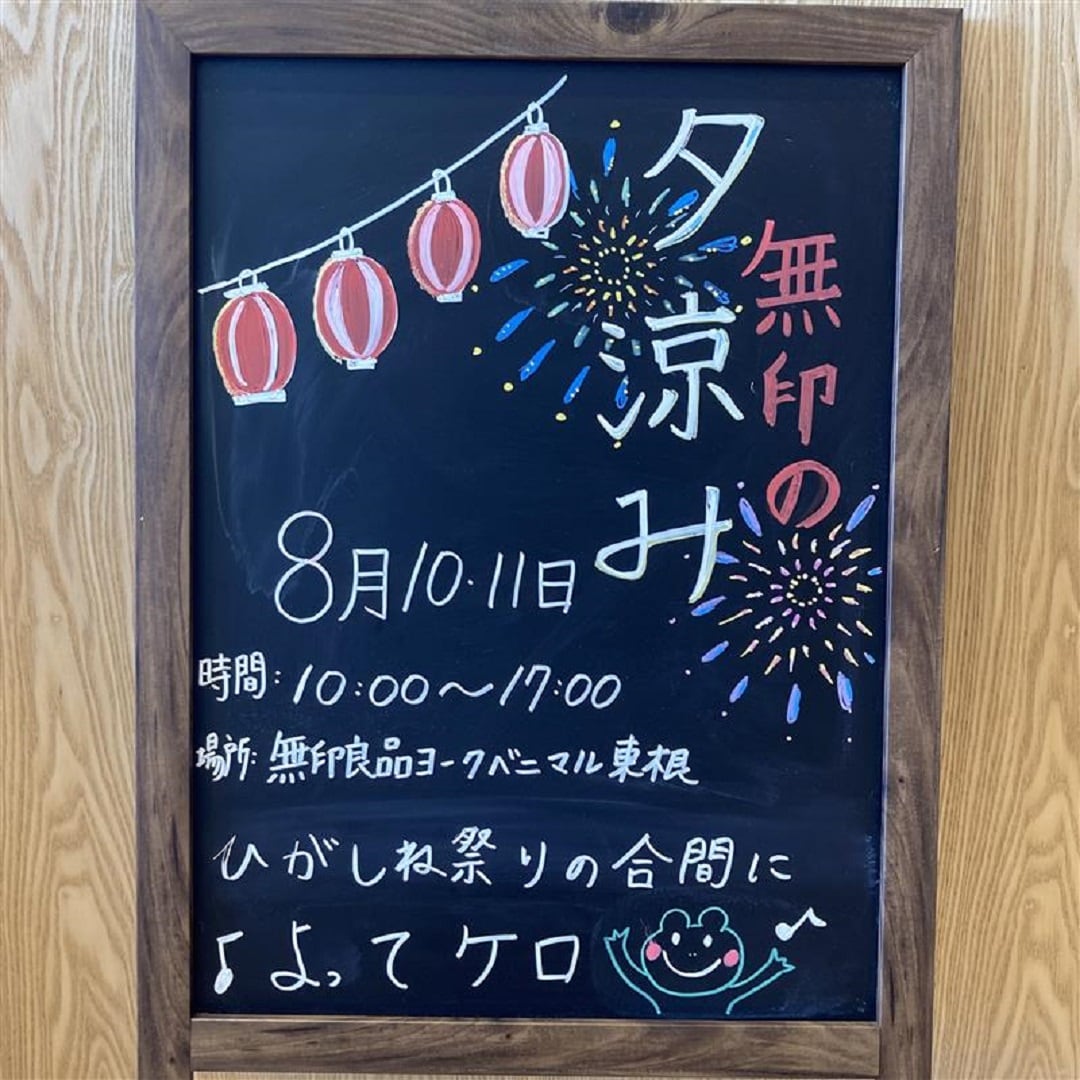 無印の
夕涼み
8月10・11日
時間：10:00〜17:00
場所：無印良品ヨークベニマル東根
ひがしね祭りの合間に
♪よってケロ♪